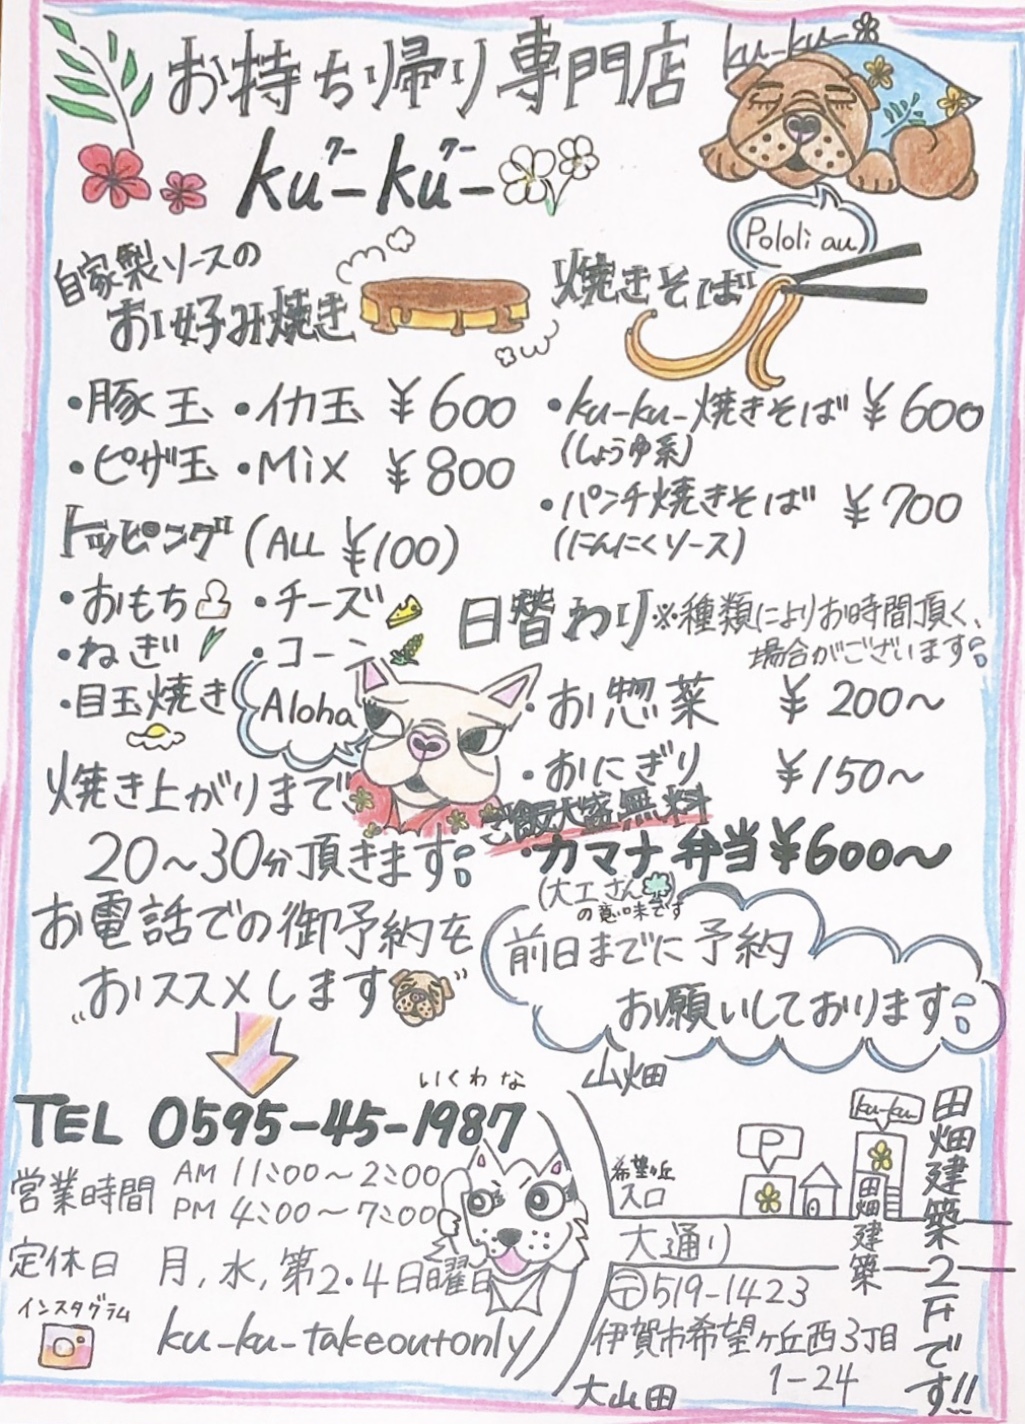 お持ち帰り専門店
ku-ku-
クー クー
ku-ku-
Pololi au
自家製ソースの
お好み焼き
・豚玉 ・イカ玉 ¥600
・ピザ玉 ・Mix ¥800
トッピング (ALL ¥100)
・おもち ・チーズ
・ねぎ ・コーン
・目玉焼き
Aloha
焼き上がりまで
20〜30分頂きます
お電話での御予約を
おススメします
焼きそば
・ku-ku-焼きそば ¥600
(しょうゆ系)
・パンチ焼きそば ¥700
(にんにくソース)
日替わり ※種類によりお時間頂く、
場合がございます
・お惣菜 ¥200〜
・おにぎり ¥150〜
ご飯大盛無料
・カマナ弁当 ¥600〜
(大工さん
の意味です)
前日までに予約
お願いしております
いくわな
TEL 0595-45-1987
営業時間 AM 11:00〜2:00
PM 4:00〜7:00
定休日 月,水,第2・4日曜日
インスタグラム
ku-ku-takeoutonly
山畑
希望ヶ丘
入口
P
ku-ku-
田畑建築
大通り
田畑建築2Fです!!
〒519-1423
伊賀市希望ヶ丘西3丁目
1-24
大山田